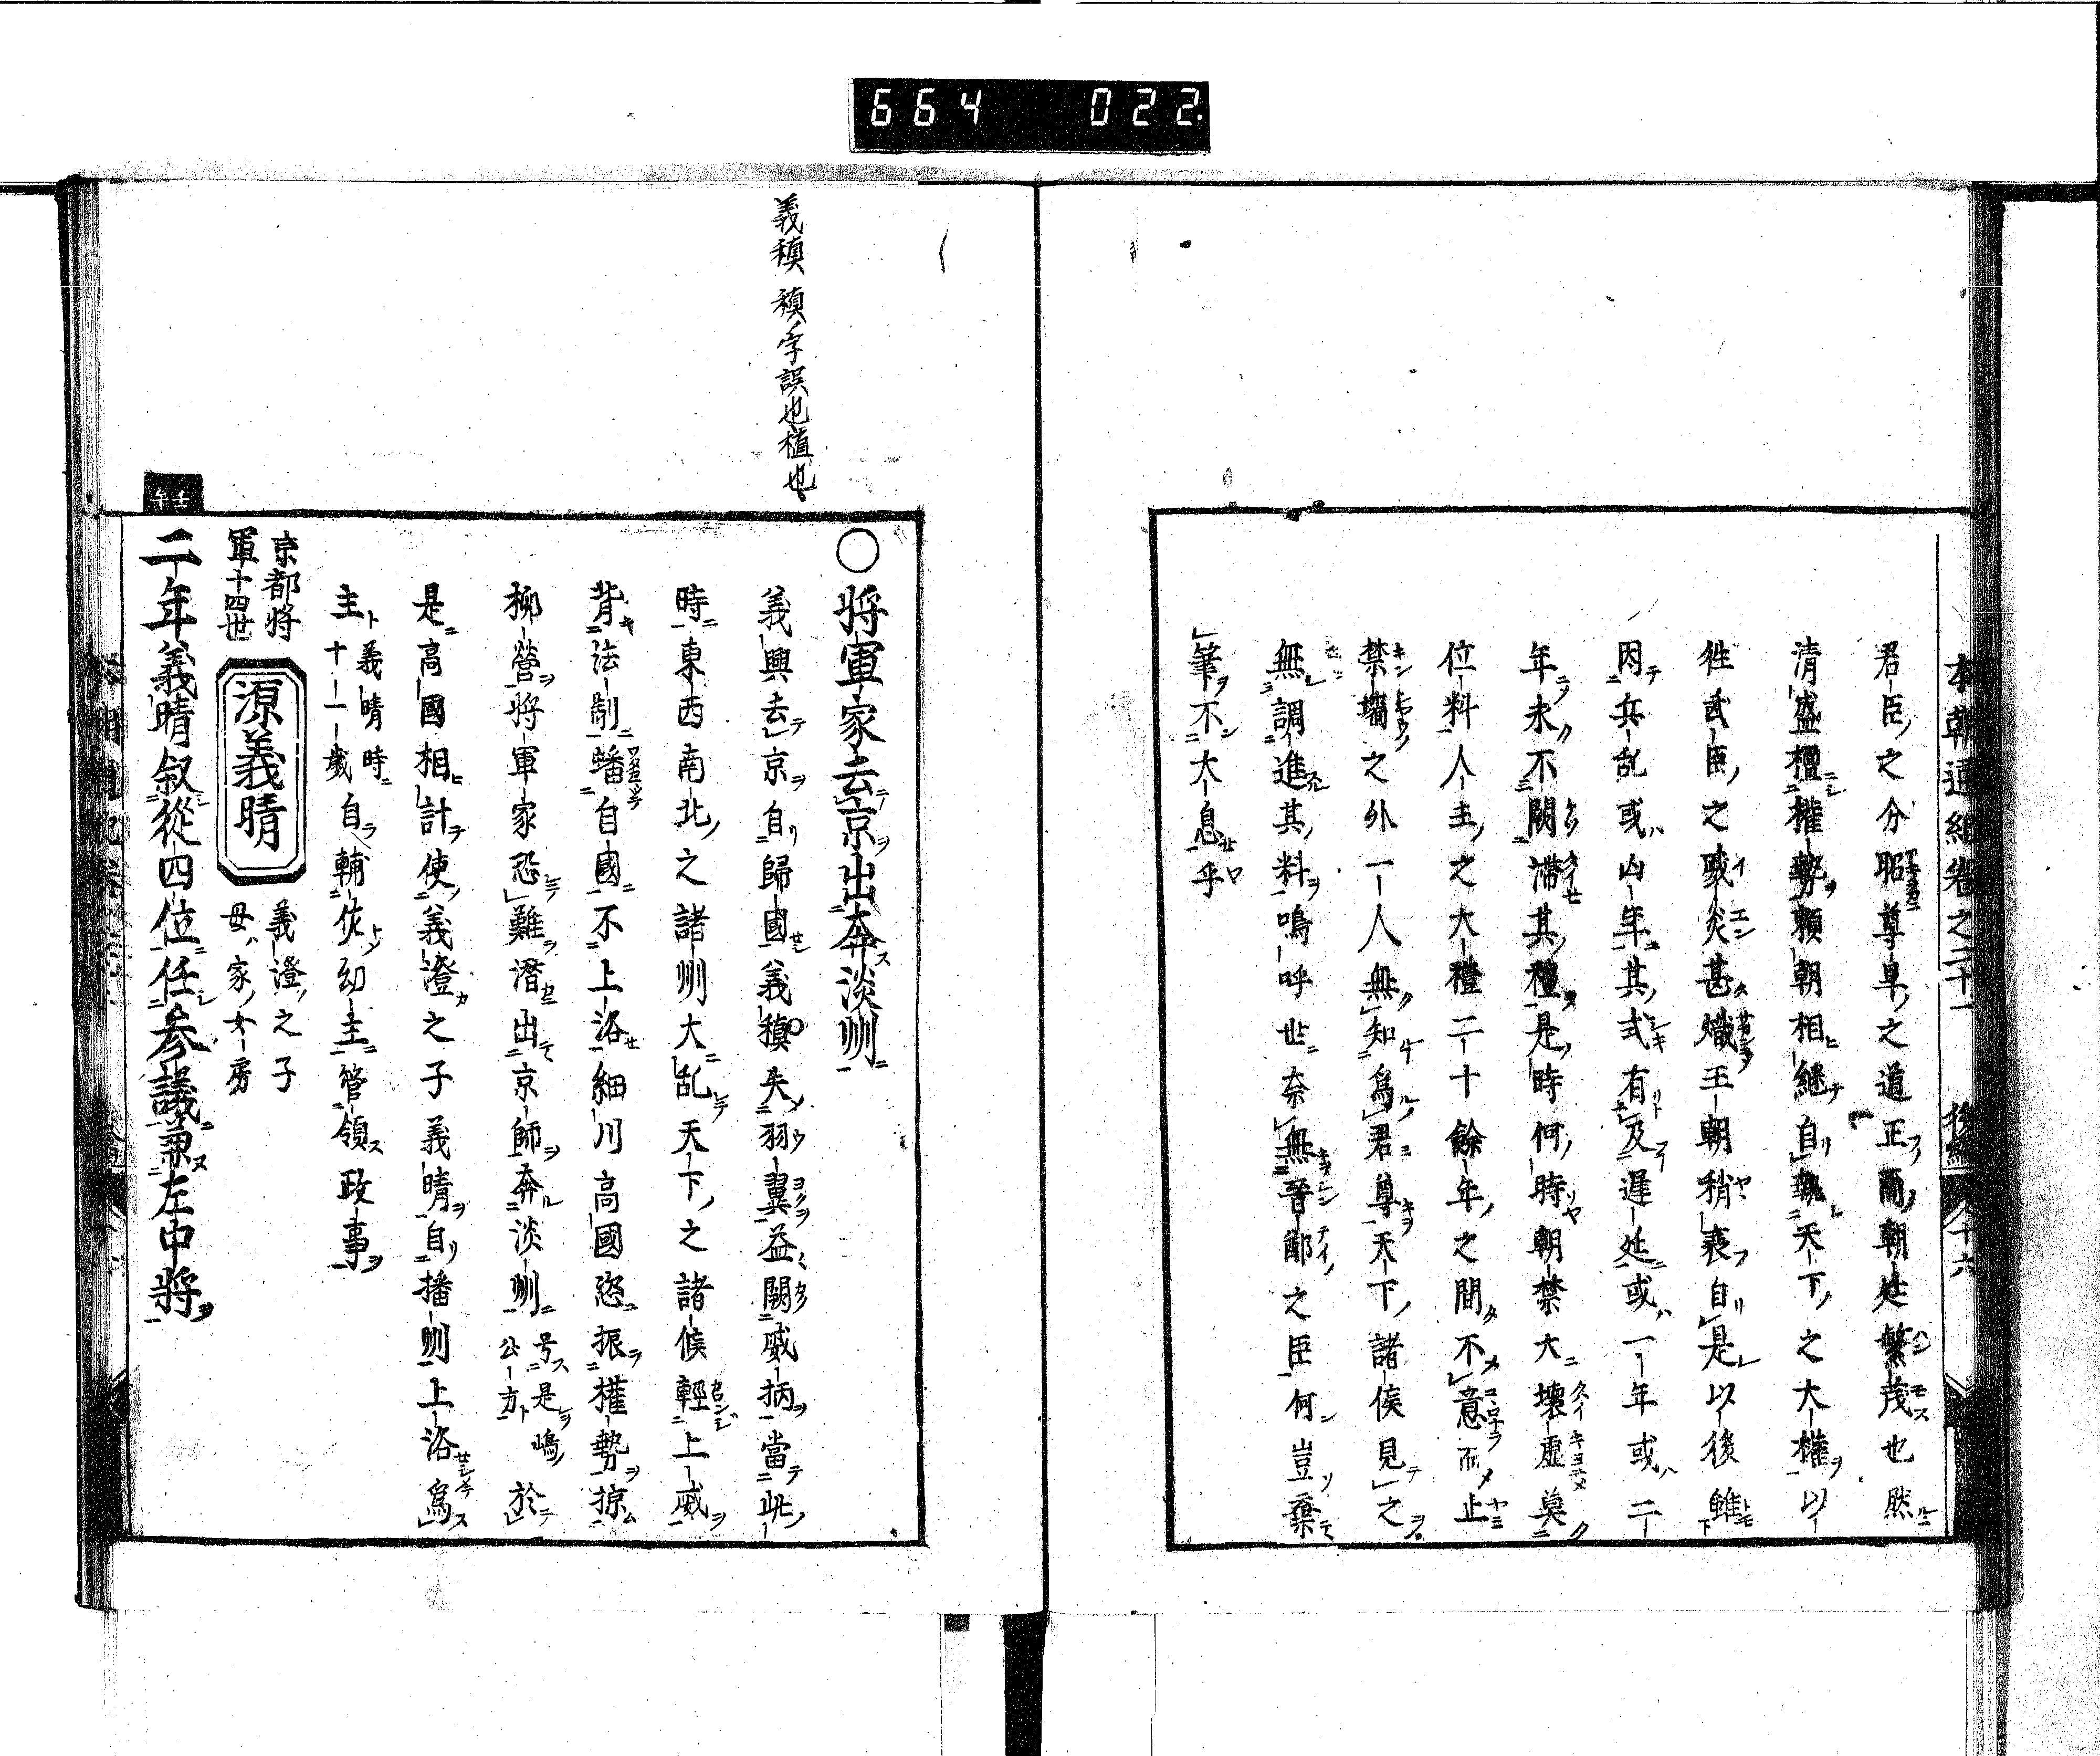 664 022
本朝通紀卷之二十一 後編 八十六
君臣之分昭尊卑之道正而朝廷繁茂也然
清盛檀權勢賴朝相繼自執天下之大權以
徃武臣之威炎甚熾王朝稍衰自是以後雖
因兵乱或凶年其式有及遅延或一年或二
年未不闕滞其禮是時何時朝禁大壊虚莫
位料人主之大禮二十餘年之間不意而止
禁墻之外一人無知爲君尊天下諸侯見之
無調進其料嗚呼世奈無晉鄭之臣何豈棄
筆不大息乎
義稹 稹字誤也植也
○將軍家去京出奔淡州
義興去京自歸國義稹失羽翼益闕威柄當此
時東西南北之諸州大乱天下之諸候輕上威
背法制蟠自國不上洛細川高國恣振權勢掠
柳營將軍家恐難潜出京師奔淡州号是嶋公方於
是高國相計使義澄之子義晴自播州上洛爲
主義晴時十一歳自輔佐幼主管領政事
京都將軍十四世 源義晴 義澄之子母家女房
壬午
二年義晴叙從四位任参議兼左中將